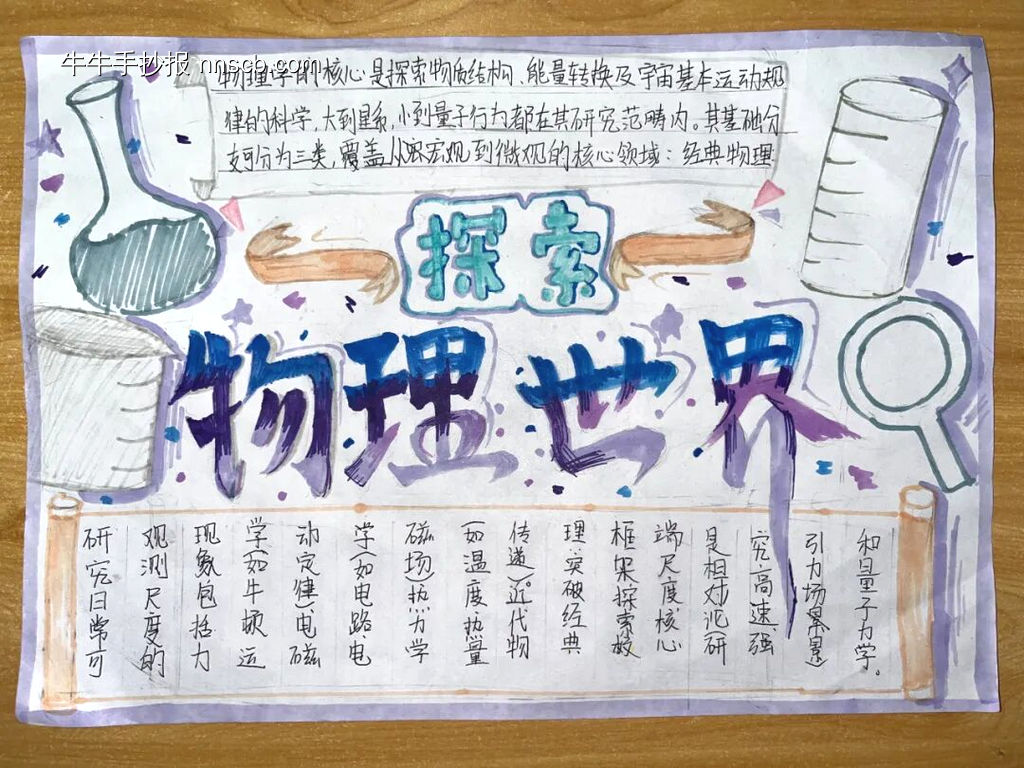 牛牛手抄报 nnscb.com
物理学的核心是探索物质结构、能量转换及宇宙基本运动规
律的科学,大到星系,小到量子行为都在其研究范畴内。其基础分
支可分为三类,覆盖从宏观到微观的核心领域:经典物理
探索
物理世界
研究日常可
观测尺度的
现象包括力
学(如牛顿运
动定律)电磁
学(如电路电
磁场)热力学
(如温度热量
传递)。近代物
理突破经典
框架探索极
端尺度核心
是相对论研
究高速强
引力场景
和量子力学。